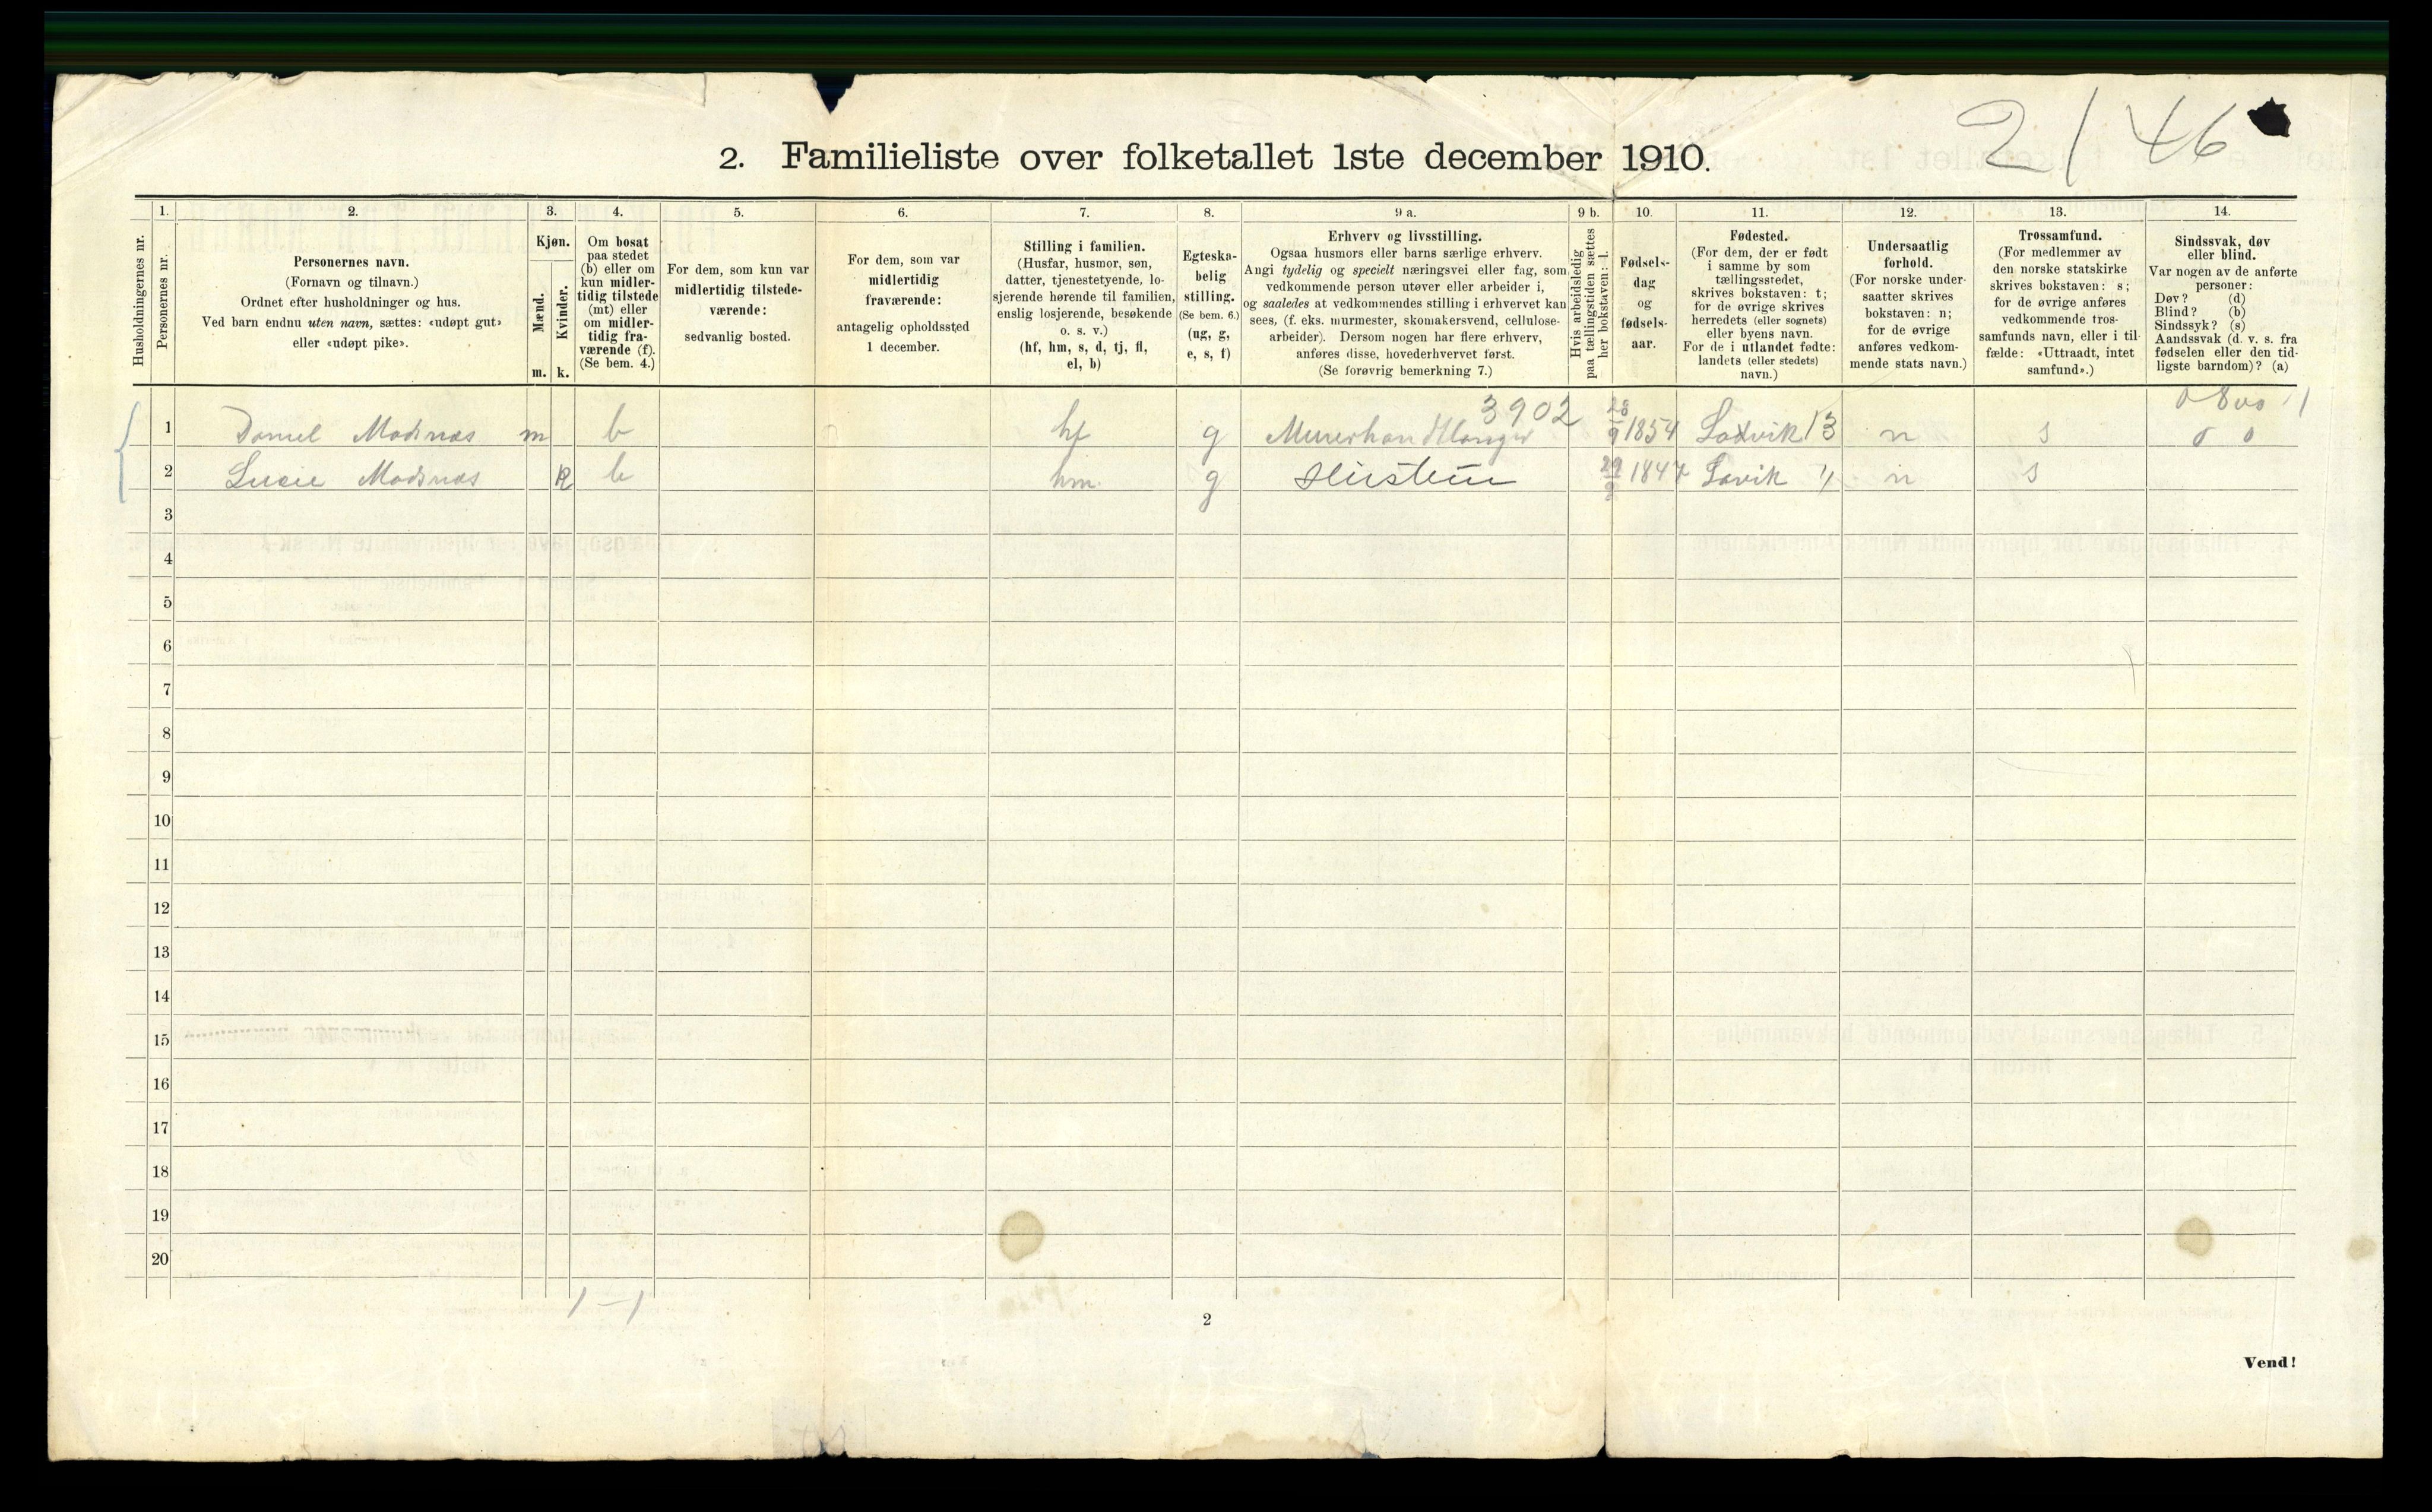 2/46
2. Familieliste over folketallet 1ste december 1910.
1. 2. 3. 4. 5. 6. 7. 8. 9 a. 9 b. 10. 11. 12. 13. 14.
Husholdningernes nr.
Personernes nr.
Personernes navn.
(Fornavn og tilnavn.)
Ordnet efter husholdninger og hus.
Ved barn endnu uten navn, sættes: «udøpt gut»
eller «udøpt pike».
Kjøn.
Mænd.
Kvinder.
m. k.
Om bosat
paa stedet
(b) eller om
kun midler-
tidig tilstede
(mt) eller
om midler-
tidig fra-
værende (f).
(Se bem. 4.)
For dem, som kun var
midlertidig tilstede-
værende:
sedvanlig bosted.
For dem, som var
midlertidig
fraværende:
antagelig opholdssted
1 december.
Stilling i familien.
(Husfar, husmor, søn,
datter, tjenestetyende, lo-
sjerende hørende til familien,
enslig losjerende, besøkende
o. s. v.)
(hf, hm, s, d, tj, fl,
el, b)
Egteska-
belig
stilling.
(Se bem. 6.)
(ug, g,
e, s, f)
Erhverv og livsstilling.
Ogsaa husmors eller barns særlige erhverv.
Angi tydelig og specielt næringsvei eller fag, som
vedkommende person utøver eller arbeider i,
og saaledes at vedkommendes stilling i erhvervet kan
sees, (f. eks. murmester, skomakersvend, cellulose-
arbeider). Dersom nogen har flere erhverv,
anføres disse, hovederhvervet først.
(Se forøvrig bemerkning 7.)
Hvis arbeidsledig
paa tællingstiden sættes
her bokstaven: l.
Fødsels-
dag
og
fødsels-
aar.
Fødested.
(For dem, der er født
i samme by som
tællingsstedet,
skrives bokstaven: t;
for de øvrige skrives
herredets (eller sognets)
eller byens navn.
For de i utlandet fødte:
landets (eller stedets)
navn.)
Undersaatlig
forhold.
(For norske under-
saatter skrives
bokstaven: n;
for de øvrige
anføres vedkom-
mende stats navn.)
Trossamfund.
(For medlemmer av
den norske statskirke
skrives bokstaven: s;
for de øvrige anføres
vedkommende tros-
samfunds navn, eller i til-
fælde: «Uttraadt, intet
samfund».)
Sindssvak, døv
eller blind.
Var nogen av de anførte
personer:
Døv? (d)
Blind? (b)
Sindssyk? (s)
Aandssvak (d. v. s. fra
fødselen eller den tid-
ligste barndom)? (a)
3902
1 Daniel Madsnas m b hf g Murerhandtlanger 28/9 1854 Ladvik 13 n s
2 Lucie Madsnas k b hm g 1847 Lavik n s
3
4
5
6
7
8
9
10
11
12
13
14
15
16
17
18
19
20
1-1
2
Vend!